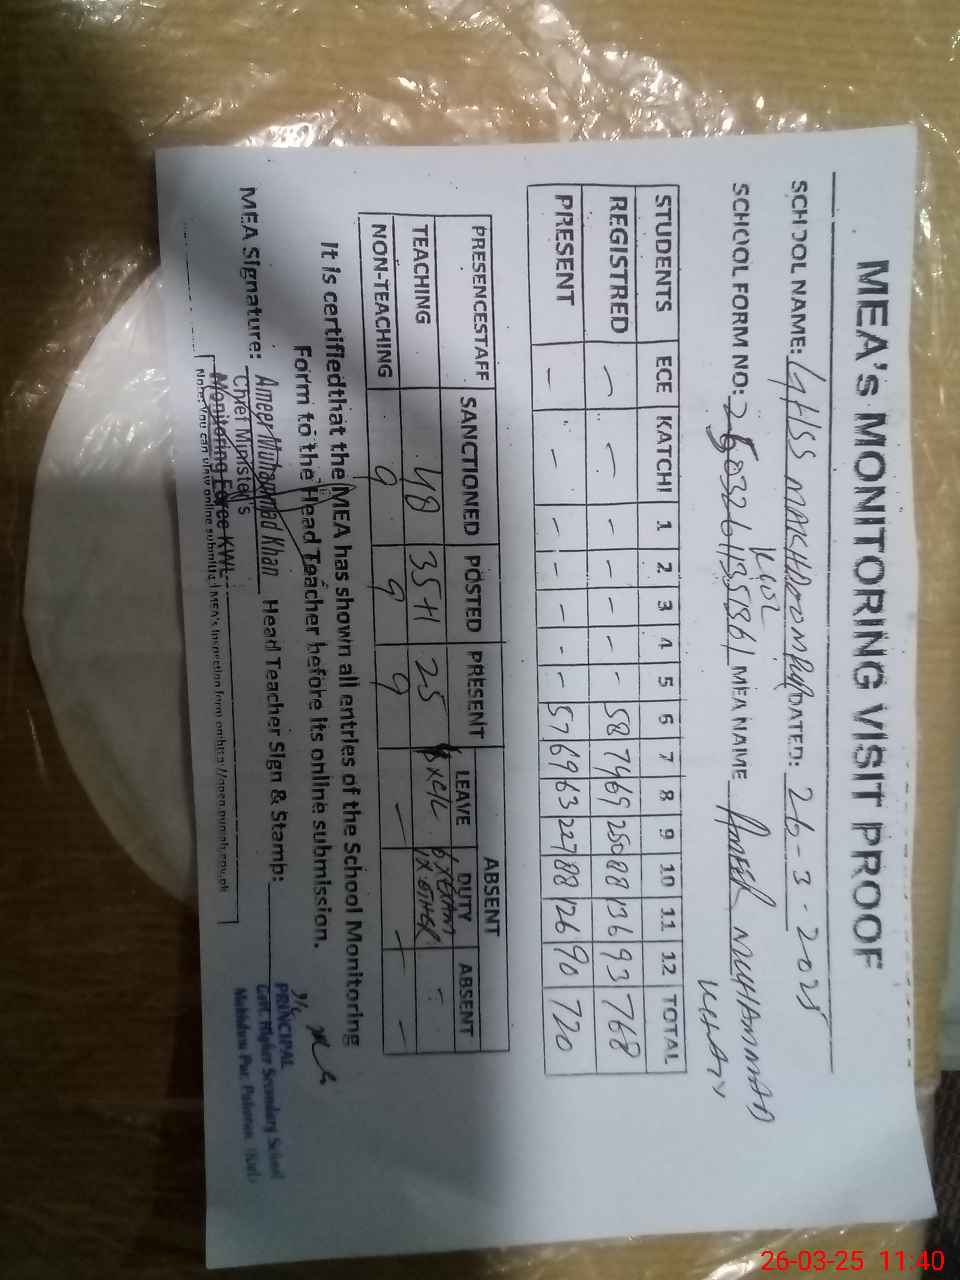 MEA's MONITORING VISIT PROOF
SCHOOL NAME: GHSS MAKHDOOMPUR DATED: 26-3-2025
KWL
SCHOOL FORM NO: MEA NAME AMEER MUHAMMAD
KHAN
STUDENTS ECE KATCHI 1 2 3 4 5 6 7 8 9 10 11 12 TOTAL
REGISTRED - - - - - - - 58 74 69 250 88 136 93 768
PRESENT - - - - - - - 57 69 63 227 88 126 90 720
ABSENT
PRESENCESTAFF SANCTIONED POSTED PRESENT LEAVE DUTY ABSENT
TEACHING 48 35+1 25 XC/L XEXAM -
XOTHER
NON-TEACHING 9 9 9 - - - -
It is certifiedthat the MEA has shown all entries of the School Monitoring
Form to the Head Teacher before its online submission.
MEA Signature: Ameer Muhammad Khan Head Teacher Sign & Stamp:
Chief Minister's
Monitoring Force KWL.
PRINCIPAL
Govt. Higher Secondary School
Makhdum Pur Pahoran
Note: You can view online submitted MEA's inspection form on http://open.punjab.gov.pk
26-03-25 11:40